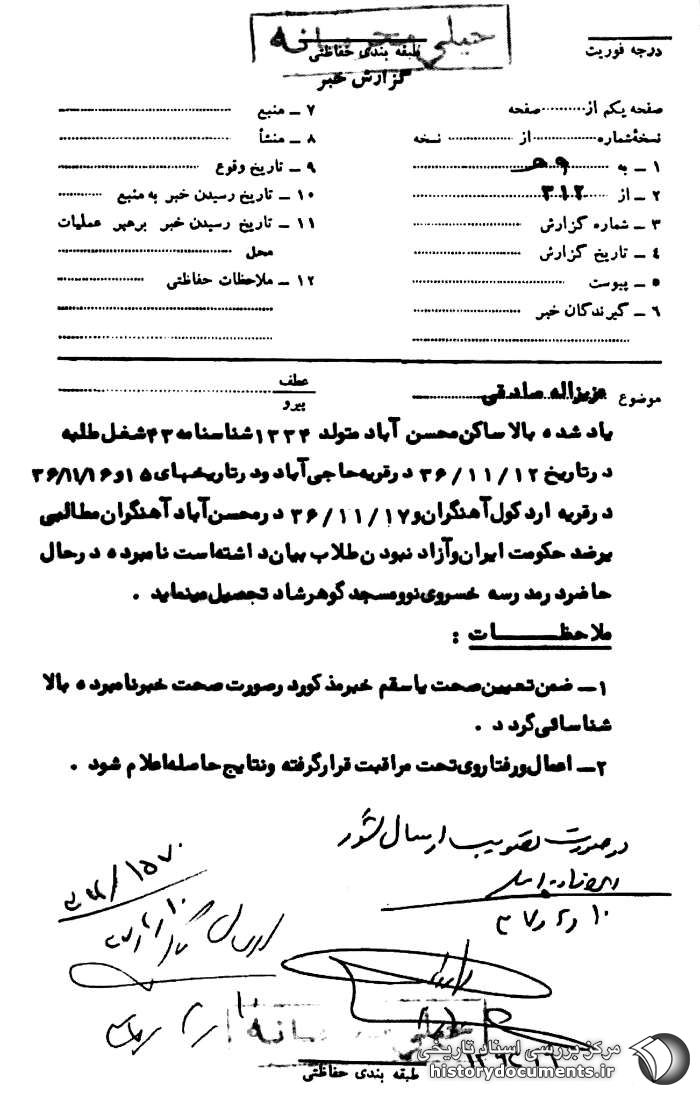 خیلی محرمانه
درجه فوریت
طبقه بندی حفاظتی
گزارش خبر
صفحه یکم از ........... صفحه
نسخهٔ شماره ............ از ............ نسخه
۱ ـ به ............
۲ ـ از ۳۱۲
۳ ـ شماره گزارش ............
۴ ـ تاریخ گزارش ............
۵ ـ پیوست ............
۶ ـ گیرندگان خبر ............
۷ ـ منبع ............
۸ ـ منشأ ............
۹ ـ تاریخ وقوع ............
۱۰ ـ تاریخ رسیدن خبر به منبع ............
۱۱ ـ تاریخ رسیدن خبر برهبر عملیات
محل ............
۱۲ ـ ملاحظات حفاظتی ............
موضوع عزیزاله صادقی
عطف
پیرو
یاد شده بالا ساکن محسن آباد متولد ۱۳۳۴ شناسنامه ۴۳ شغل طلبه
در تاریخ ۳۶/۱۱/۱۲ در قریه حاجی آباد و در تاریخهای ۱۵ و ۳۶/۱۱/۱۶
در قریه ارد کول آهنگران و ۳۶/۱۱/۱۷ در محسن آباد آهنگران مطالبی
برضد حکومت ایران و آزاد نبودن طلاب بیان داشته است نامبرده در حال
حاضر در مدرسه خسروی نو و مسجد گوهرشاد تحصیل مینماید .
ملاحظـــات :
۱ـ ضمن تعیین صحت یا سقم خبر مذکور در صورت صحت خبر نامبرده بالا
شناسائی گردد .
۲ـ اعمال و رفتار وی تحت مراقبت قرار گرفته و نتایج حاصله اعلام شود .
در صورت تصویب ارسال شود
خیلی محرمانه
طبقه بندی حفاظتی
مرکز بررسی اسناد تاریخی
historydocuments.ir